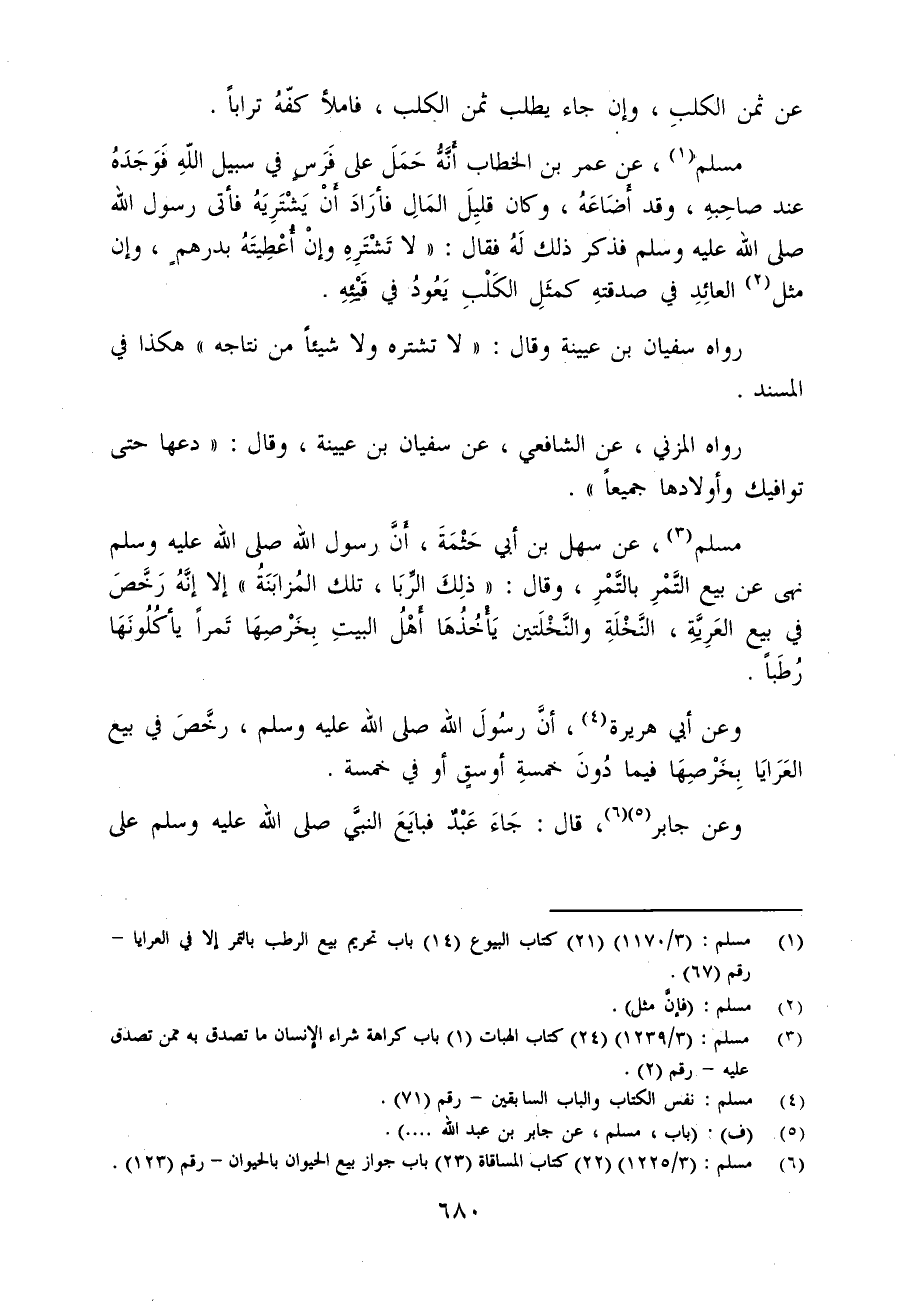 عن ثمن الكلبِ ، وإن جاء يطلب ثمن الكلب ، فاملأ كفّهُ تراباً .
مسلم(١) ، عن عمر بن الخطاب أَنَّهُ حَمَلَ على فَرَسٍ في سبيل اللّهِ فَوَجَدَهُ
عند صاحبِهِ ، وقد أَضَاعَهُ ، وكان قليلَ المَالِ فأرَادَ أَنْ يَشْتَرِيَهُ فأتى رسول الله
صلى الله عليه وسلم فذكر ذلك لَهُ فقال : « لا تَشْتَرِهِ وإنْ أُعْطِيتَهُ بدرهمٍ ، وإن
مثل(٢) العائِدِ في صدقتهِ كمثَلِ الكَلْبِ يَعُودُ في قَيْئِهِ .
رواه سفيان بن عيينة وقال : « لا تشتره ولا شيئاً من نتاجه » هكذا في
المسند .
رواه المزني ، عن الشافعي ، عن سفيان بن عيينة ، وقال : « دعها حتى
توافيك وأولادها جميعاً » .
مسلم(٣) ، عن سهل بن أبي حَثْمَةَ ، أَنَّ رسول الله صلى الله عليه وسلم
نهى عن بيع التَّمْرِ بالتَّمْرِ ، وقال : « ذلِكَ الرِّبَا ، تلك المُزابَنَةُ » إلا إنَّهُ رَخَّصَ
في بيع العَرِيَّةِ ، النَّخْلَةِ والنَّخْلَتين يَأْخُذُهَا أَهْلُ البيتِ بِخَرْصِهَا تَمراً يأكُلُونَهَا
رُطَباً .
وعن أبي هريرة(٤) ، أنَّ رسُولَ الله صلى الله عليه وسلم ، رخَّصَ في بيع
العَرَايَا بِخَرْصِهَا فيما دُونَ خمسةِ أوسقٍ أو في خمسة .
وعن جابر(٥)(٦)، قال : جَاءَ عَبْدٌ فبايَعَ النبيَّ صلى الله عليه وسلم على
(١) مسلم : (٣/ ١١٧٠) (٢١) كتاب البيوع (١٤) باب تحريم بيع الرطب بالتمر إلا في العرايا –
رقم (٦٧) .
(٢) مسلم : (فإنَّ مثل) .
(٣) مسلم : (٣/ ١٢٣٩) (٢٤) كتاب الهبات (١) باب كراهة شراء الإنسان ما تصدق به ممن تصدق
عليه – رقم (٢) .
(٤) مسلم : نفس الكتاب والباب السابقين – رقم (٧١) .
(٥) (ف) : (باب ، مسلم ، عن جابر بن عبد الله ....) .
(٦) مسلم : (٣/ ١٢٢٥) (٢٢) كتاب المساقاة (٢٣) باب جواز بيع الحيوان بالحيوان – رقم (١٢٣) .
٦٨٠